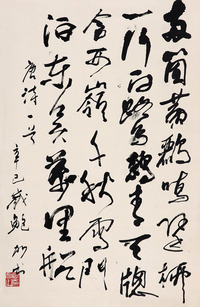 兩箇黃鸝鳴翠柳
一行白鷺上青天窗
含西嶺千秋雪門
泊東吳萬里船
唐詩一首
辛巳歲鮑加